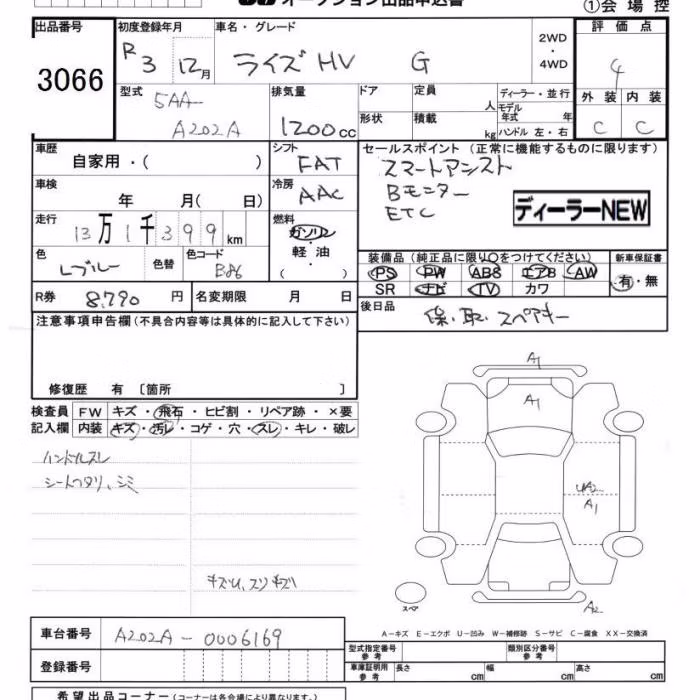 オークション出品申込書
①会場控
出品番号 3066
初度登録年月 R 3 12月
車名・グレード ライズ HV G
2WD ・ 4WD
評価点 4
外装 内装
C C
型式 5AA- A202A
排気量 1200cc
ドア 定員 人
形状 積載 kg
ディーラー・並行
モデル年式 年
ハンドル 左・右
車歴 自家用・( )
シフト FAT
セールスポイント (正常に機能するものに限ります)
スマートアシスト
Bモニター
ETC
ディーラーNEW
車検 年 月( 日)
冷房 AAC
走行 13万1千399km
燃料 ガソリン ・ 軽油 ( )
色 Lブルー 色替 色コード B86
装備品(純正品に限り○をつけてください) 新車保証書
PS PW ABS エアB AW 有・無
SR ナビ TV カワ
R券 8,790円 名変期限 月 日
後日品 保・取・スペアキー
注意事項申告欄(不具合内容等は具体的に記入して下さい)
修復歴 有 〔箇所 〕
検査員 FW キズ・飛石・ヒビ割・リペア跡・×要
記入欄 内装 キズ・汚レ・コゲ・穴・スレ・キレ・破レ
ハンドルスレ
シートヘタリ、シミ
キズU、スリキズU
A1
A1
UA2
A1
A2
スペア
A-キズ E-エクボ U-凹み W-補修跡 S-サビ C-腐食 XX-交換済
車台番号 A202A-0006169
型式指定番号 参考 類別区分番号 参考
登録番号
車庫証明用 参考 長さ cm 幅 cm 高さ cm
希望出品コーナー(コーナーは各会場により異なります。)